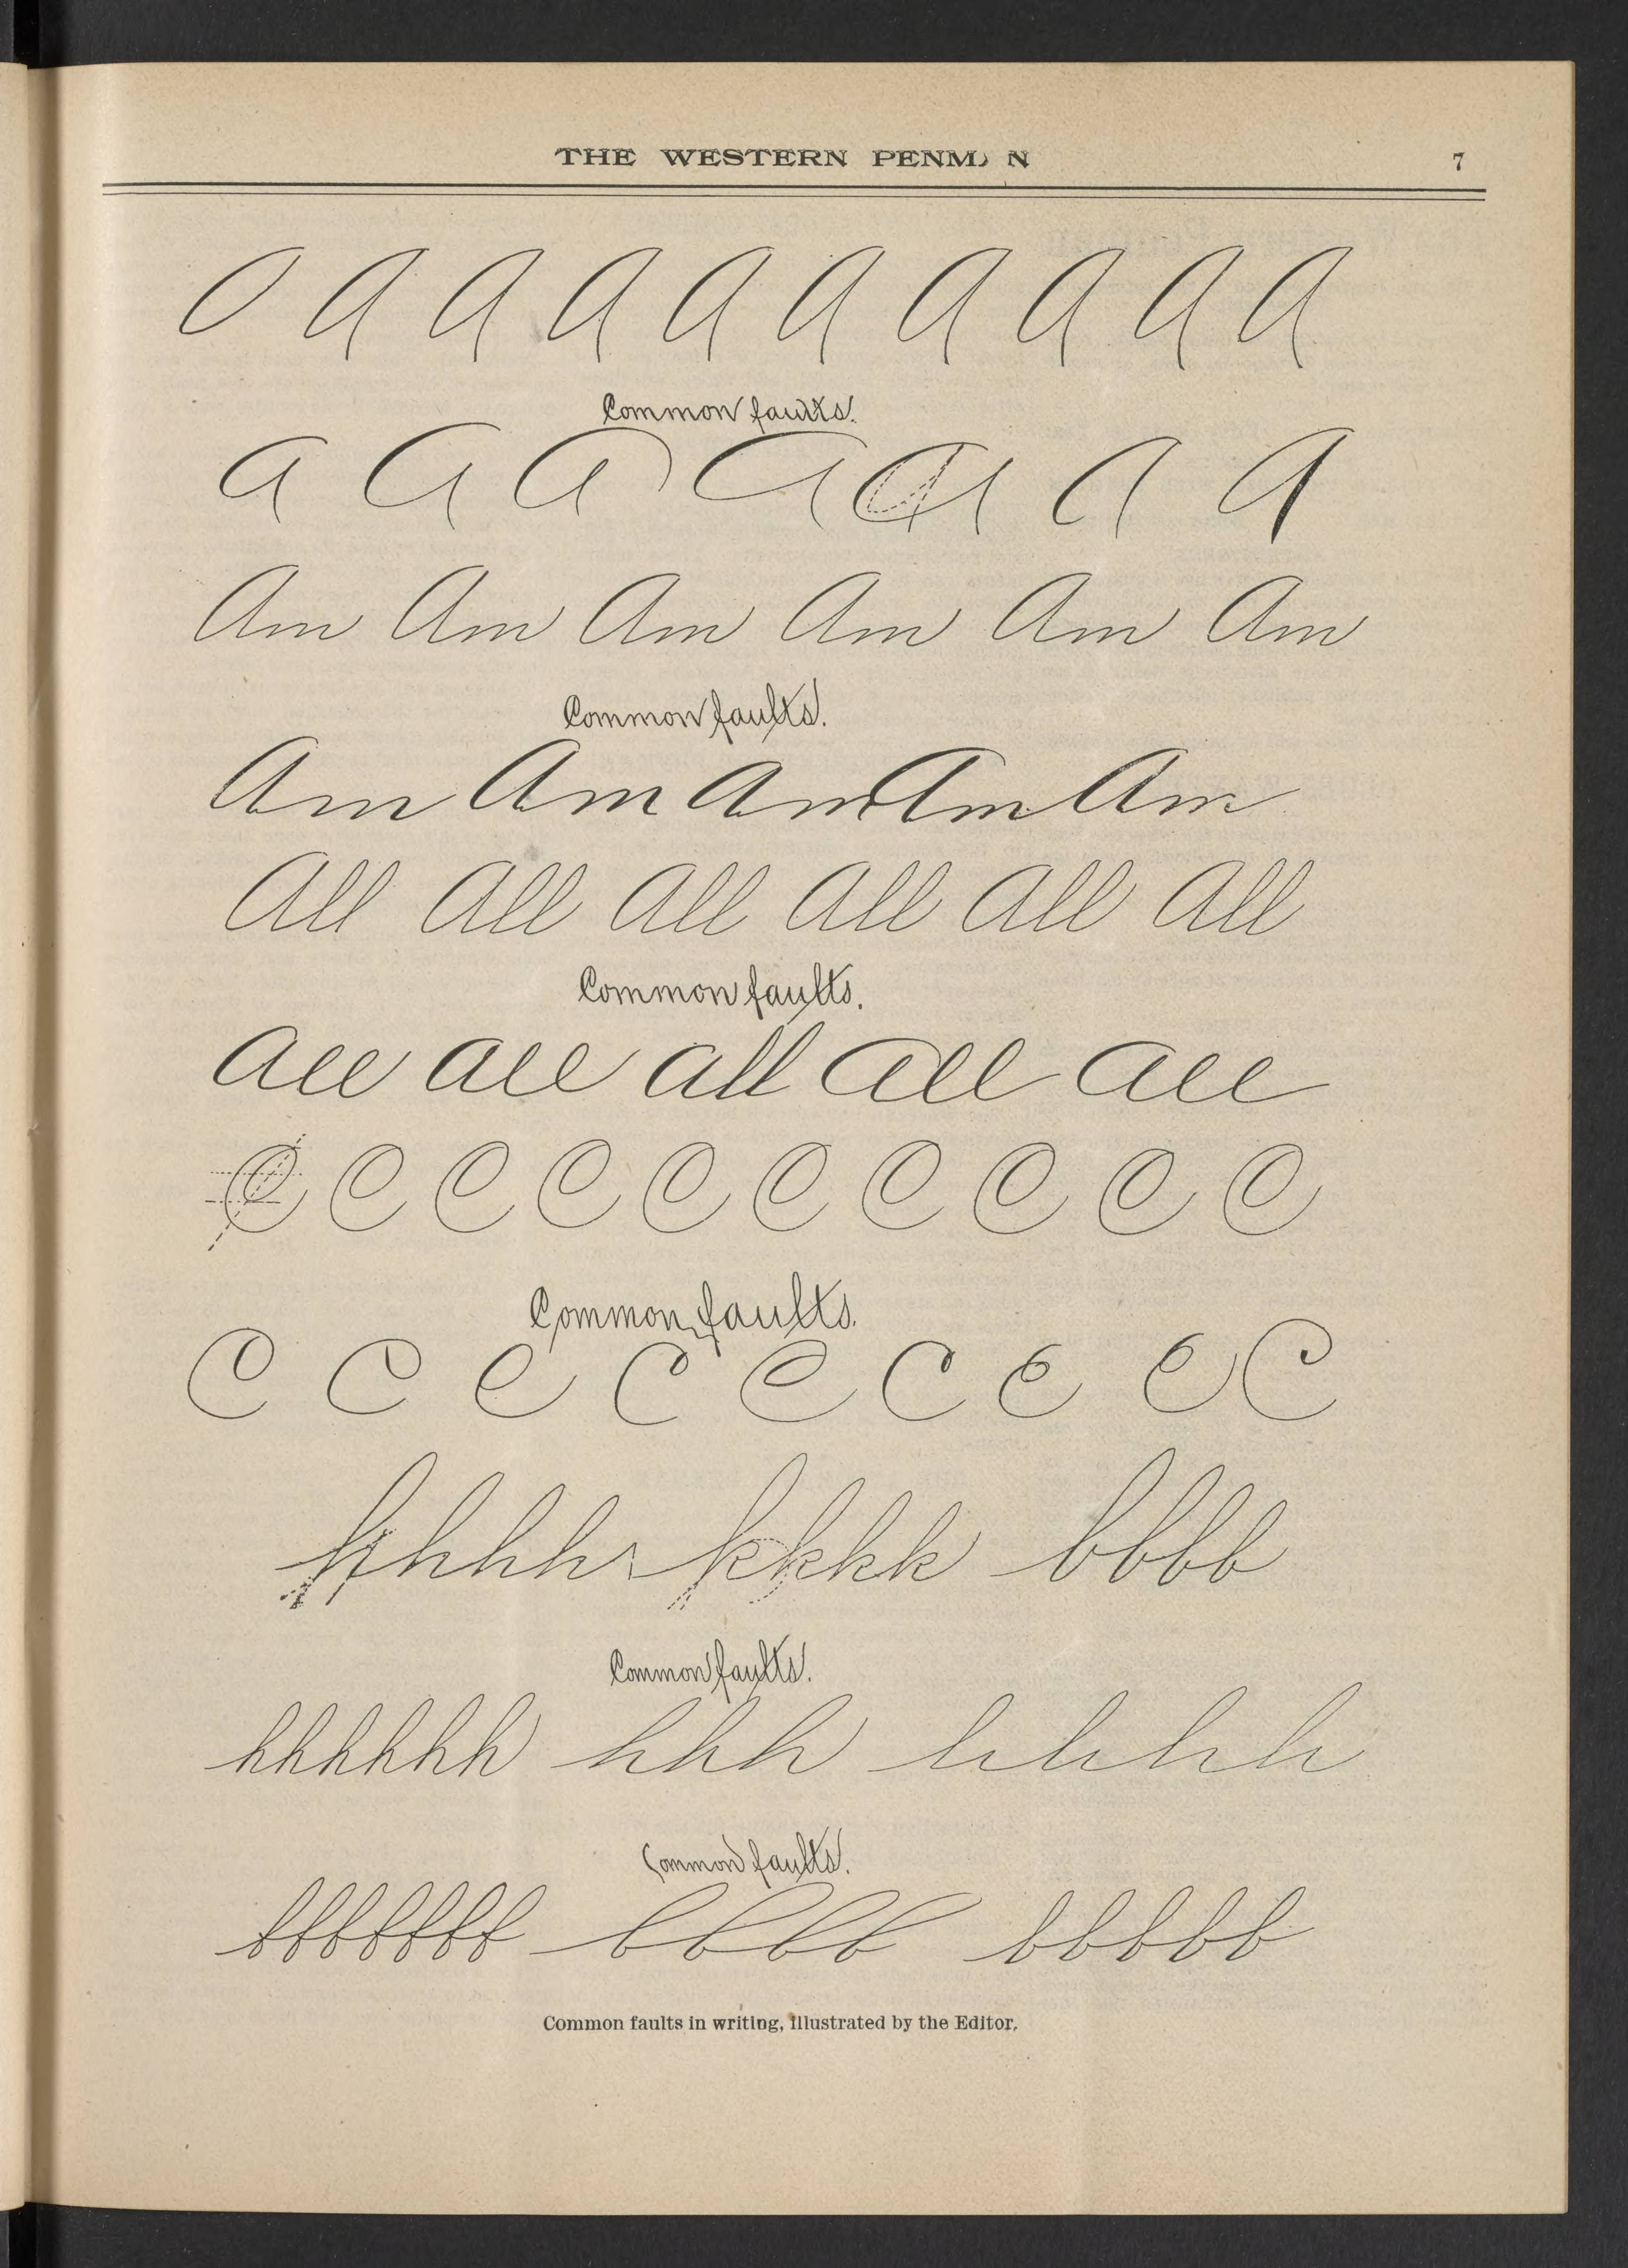 THE WESTERN PENM N 7
O A A A A A A A A A
Common faults.
A A A A A A A A
Am Am Am Am Am Am
Common faults.
Am Am Am Am Am
All All All All All All
Common faults.
All All All All All
C C C C C C C C C C
Common faults.
C C C C C C C C C
h h h h k k k k b b b b
Common faults.
h h h h h h h h h h h h h
Common faults.
b b b b b b b b b b b b b b b b
Common faults in writing, illustrated by the Editor.